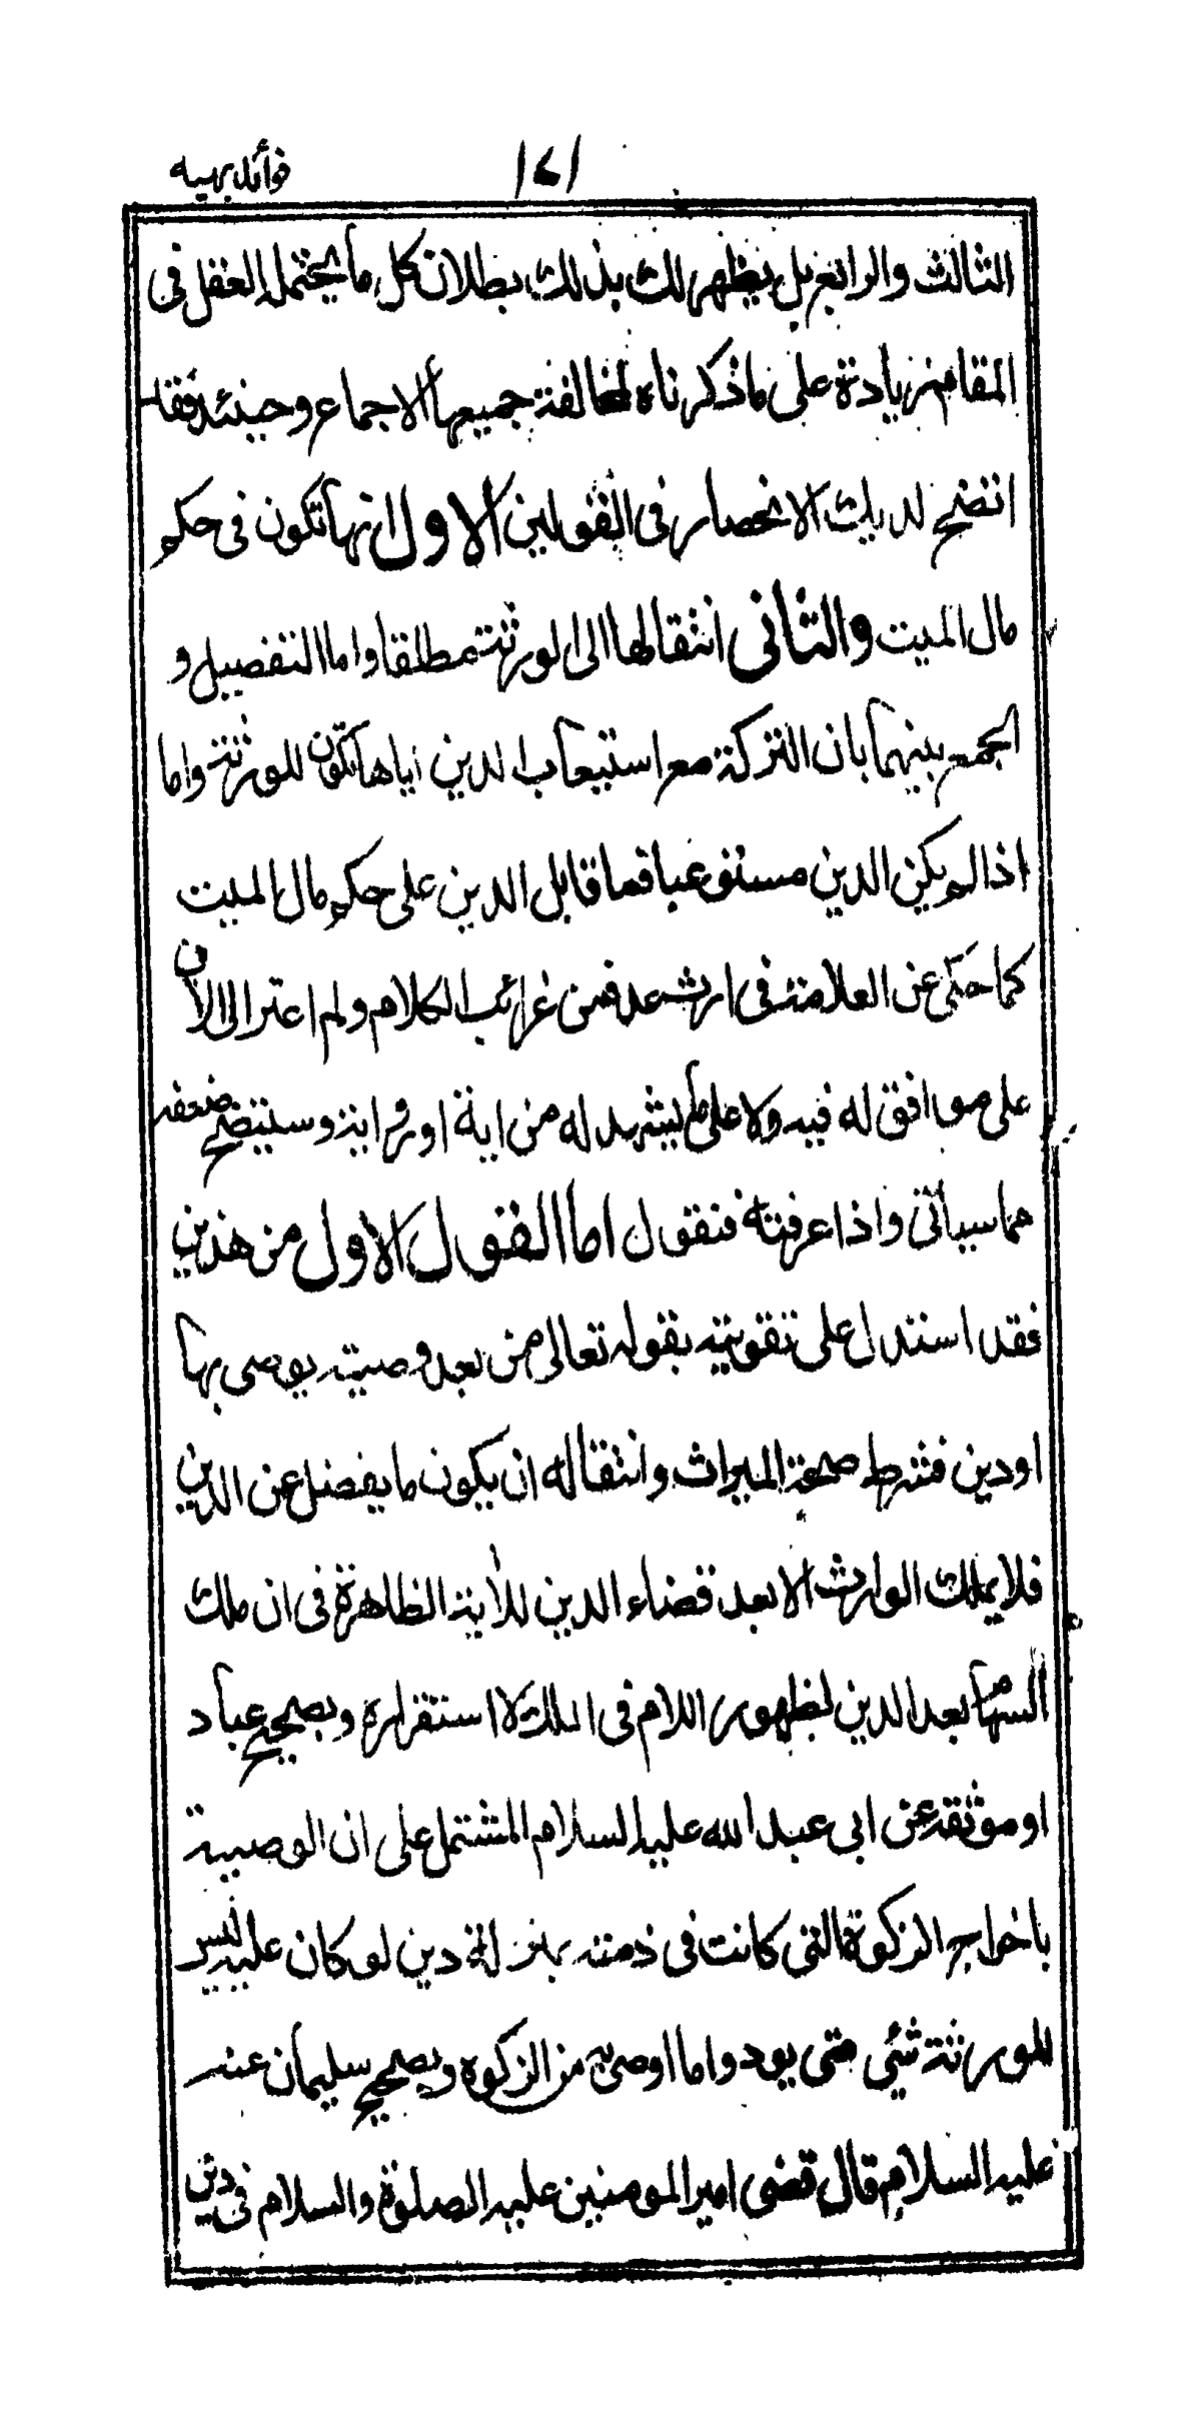 فوائد بهيه
١٤١
الثالث والرابع بل يظهر لك بذلك بطلان كل ما يحتمله العقل فى
المقام زيادة على ما ذكرناه لمخالفة جميعها الاجماع وحينئذ فقد
اتضح لديك الانحصار فى القولين الاول انها تكون فى حكم
مال الميت والثانى انتقالها الى الورثة مطلقا واما التفصيل و
الجمع بينهما بان التركة مع استيعاب الدين اياها تكون للورثة واما
اذا لم يكن الدين مستوعبا فما قابل الدين على حكم مال الميت
كما حكى عن العلامة فى ارث عد فمن غرائب الكلام ولم اعثر الى الان
على موافق له فيه ولا على ما يشهد له من اية او رواية وسيتضح ضعفه
مما سياتى واذا عرفته فنقول اما القول الاول من هذين
فقد استدل على تقويته بقوله تعالى من بعد وصية يوصى بها
او دين فشرط صحة الميراث وانتقاله ان يكون ما يفضل عن الدين
فلا يملك الوارث الا بعد قضاء الدين للأية الظاهرة فى ان ملك
السهام بعد الدين لظهور اللام فى الملك لا استقراره وبصحيح عباد
او موثقه عن ابى عبد الله عليه السلام المشتمل على ان الوصية
باخراج الزكوة التى كانت فى ذمته بمنزلة دين لو كان عليه ليس
للورثة شئى متى يودوا ما اوصى به من الزكوة وبصحيح سليمان عنه
عليه السلام قال قضى امير المومنين عليه الصلوة والسلام فى دين